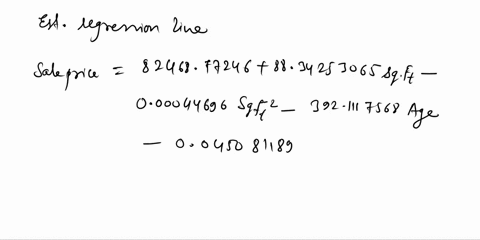 Est. regression line
Sale price = 82468.77246 + 88.34253065 Sq.ft —
0.00044696 Sq.ft² — 392.1117568 Age
— 0.045081189